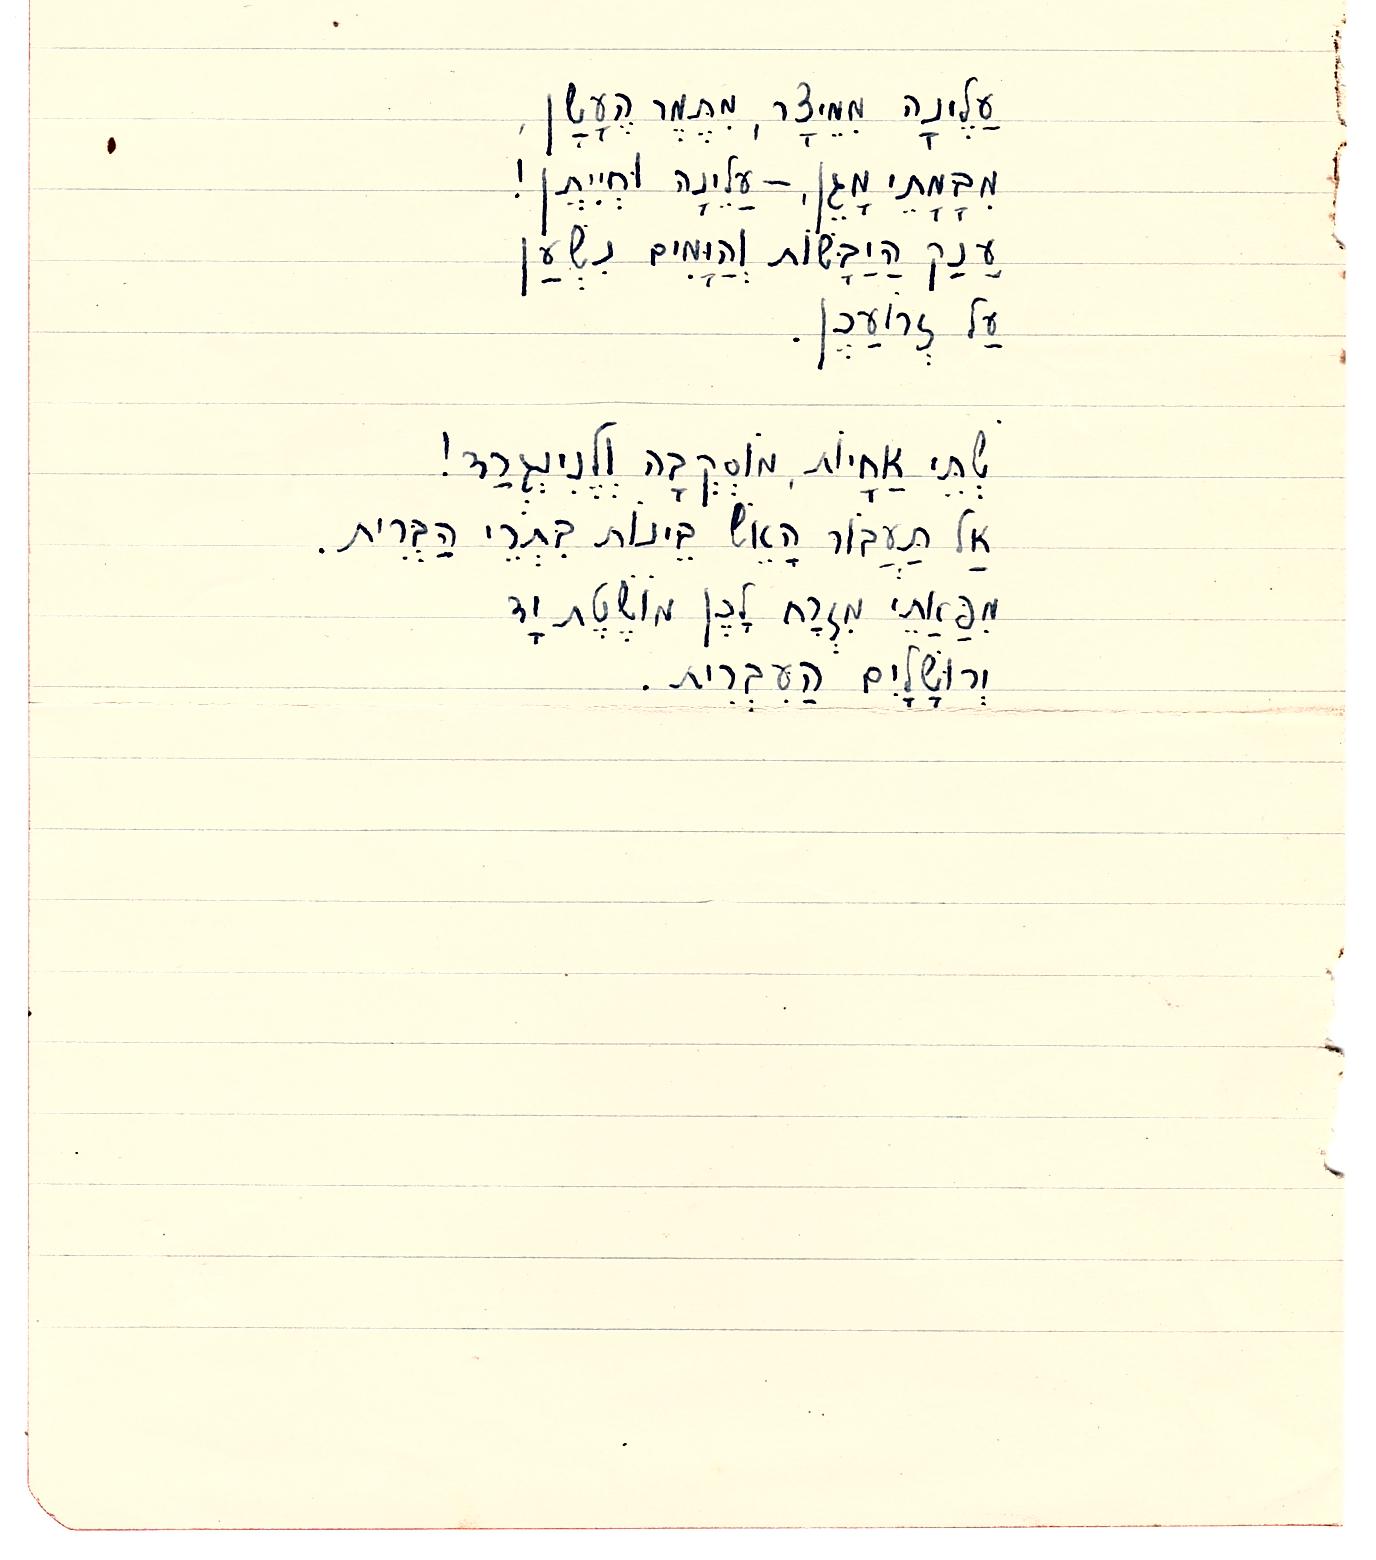 עֲלֶינָה מִמֵּיצָר, מִתֶּמֶר הֶעָשָׁן,
מִבָּמָתֵי מָגֵן, – עֲלֵינָה וּחְיִיתֶן!
עֲנַק הַיַבָּשׁוֹת וְהַיָּמִים נִשְׁעַן
עַל זְרוֹעֲכֶן.
שְׁתֵּי אֲחָיוֹת, מוֹסְקְבָה וְלֶנִינְגְרַד!
אַל תַּעֲבוֹר הָאֵשׁ בֵּינוֹת בִּתְרֵי הַבְּרִית.
מִפַּאֲתֵי מִזְרָח לָכֶן מוֹשֶׁטֶת יָד
יְרוּשָׁלַיִם הָעִבְרִית.